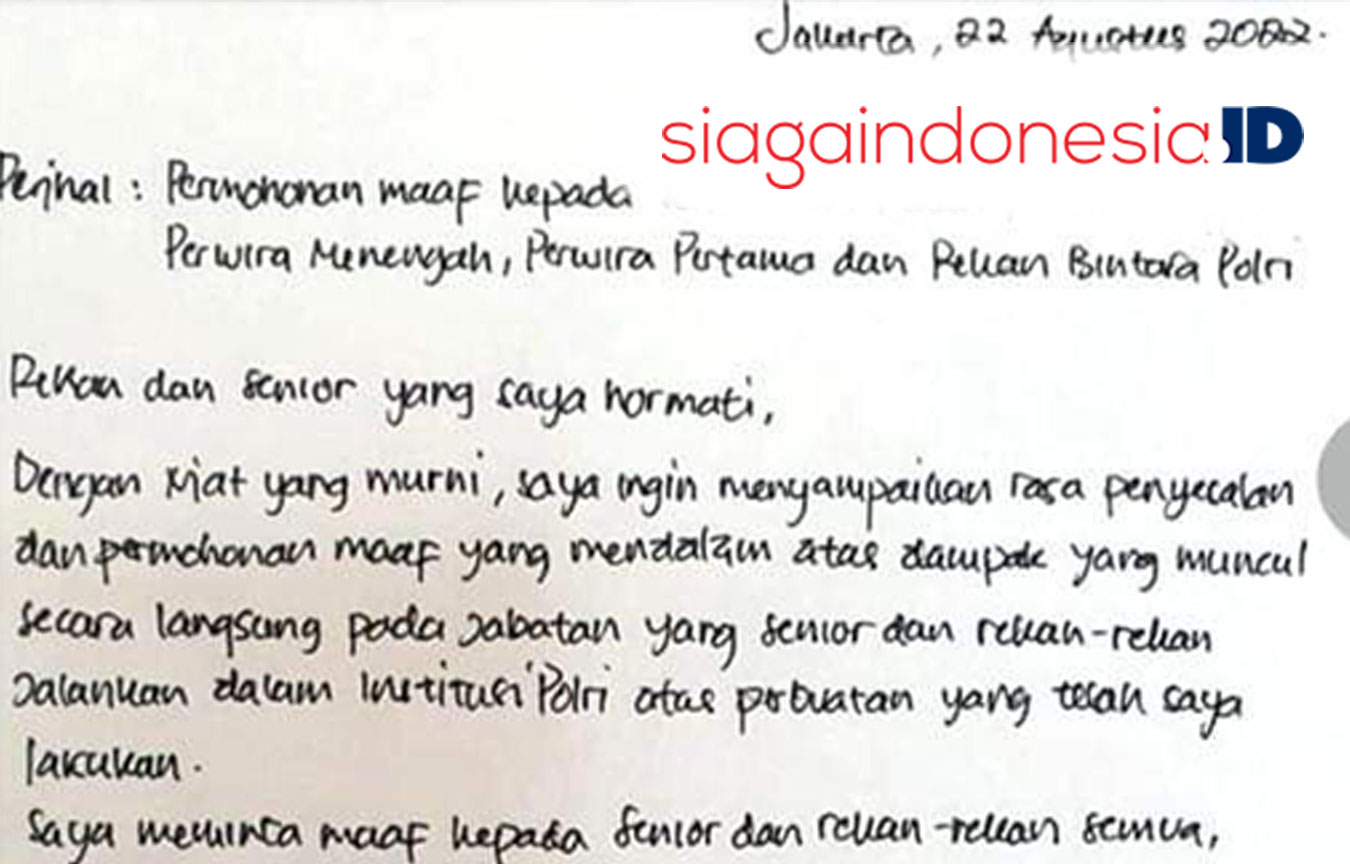 Jakarta, 22 Agustus 2022.
siagaindonesia.ID
Perihal : Permohonan maaf kepada
Perwira Menengah, Perwira Pertama dan Rekan Bintara Polri
Rekan dan senior yang saya hormati,
Dengan niat yang murni, saya ingin menyampaikan rasa penyesalan
dan permohonan maaf yang mendalam atas dampak yang muncul
secara langsung pada jabatan yang senior dan rekan-rekan
jalankan dalam institusi Polri atas perbuatan yang telah saya
lakukan.
Saya meminta maaf kepada senior dan rekan-rekan semua,